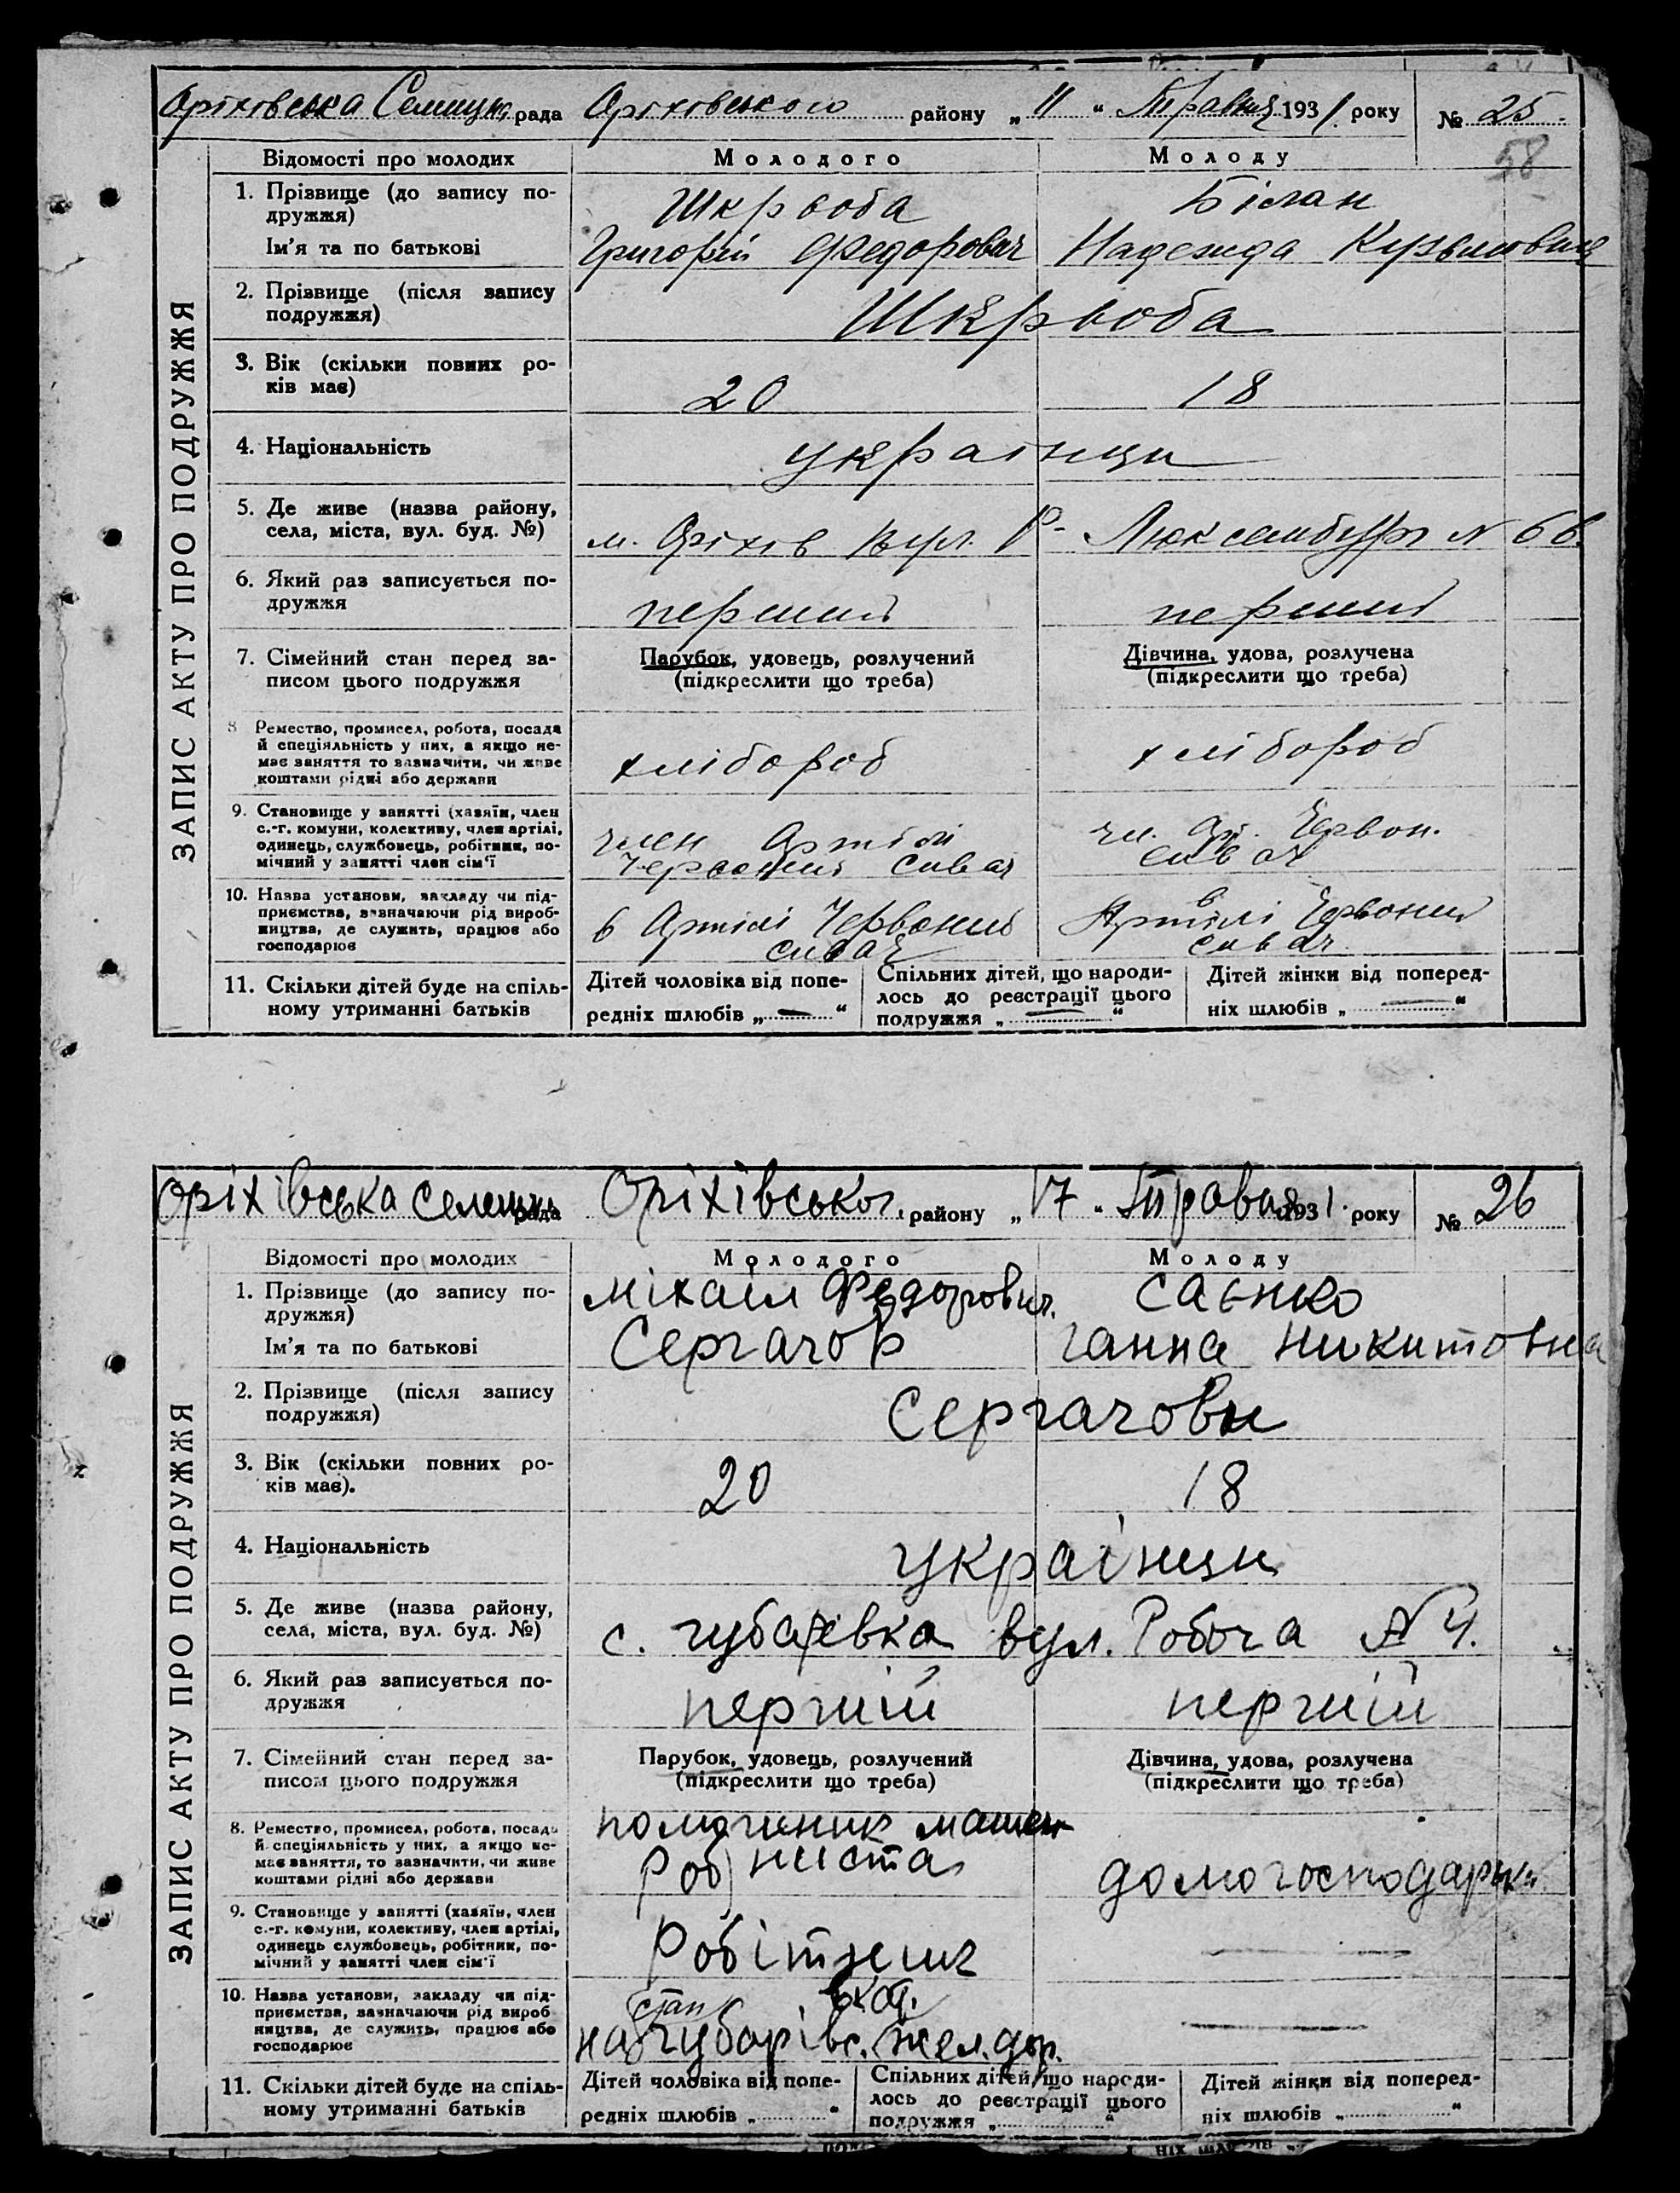 Оріхівська Селищна рада Оріхівського району „11“ Травня 1931 року № 25
58
Відомості про молодих Молодого Молоду
ЗАПИС АКТУ ПРО ПОДРУЖЖЯ
1. Прізвище (до запису по- Шкрьоба Білан
дружжя)
Ім'я та по батькові Григорій Федорович Надежда
2. Прізвище (після запису Шкрьоба
подружжя)
3. Вік (скільки повних ро- 20 18
ків має)
4. Національність українци
5. Де живе (назва району,
села, міста, вул. буд. №) м. Оріхів вул. Р. Люксембург №
6. Який раз записується по-
дружжя перший перший
7. Сімейний стан перед за- Парубок, удовець, розлучений Дівчина, удова, розлучена
писом цього подружжя (підкреслити що треба) (підкреслити що треба)
8 Ремество, промисел, робота, посада
й спеціяльність у них, а якщо не- хлібороб хлібороб
має заняття то зазначити, чи живе
коштами рідні або держави
9. Становище у занятті (хазяїн, член
с.-г. комуни, колективу, член артілі, член Артілі чл. Ар. Червон.
одинець, службовець, робітник, по- Червоний сивач сивач
мічний у занятті член сім'ї
10. Назва установи, закладу чи під- в
приємства, зазначаючи рід вироб- в Артілі Червоний Артілі Червоний
ництва, де служить, працює або сивач сивач
господарює
11. Скільки дітей буде на спіль- Дітей чоловіка від попе- Спільних дітей, що народи- Дітей жінки від поперед-
ному утриманні батьків редніх шлюбів „—“ лось до реєстрації цього ніх шлюбів „—“
подружжя „—“
Оріхівська Селищна рада Оріхівськог. району „17“ Травня 1931 року № 26
Відомості про молодих Молодого Молоду
ЗАПИС АКТУ ПРО ПОДРУЖЖЯ
1. Прізвище (до запису по- Міхаіл Федорович. Саєнко
дружжя)
Ім'я та по батькові Сергачов Ганна Никитовна
2. Прізвище (після запису Сергачови
подружжя)
3. Вік (скільки повних ро- 20 18
ків має).
4. Національність українци
5. Де живе (назва району,
села, міста, вул. буд. №) с. Губарівка вул. Робоча № 4.
6. Який раз записується по- перший перший
дружжя
7. Сімейний стан перед за- Парубок, удовець, розлучений Дівчина, удова, розлучена
писом цього подружжя (підкреслити що треба) (підкреслити що треба)
8. Ремество, промисел, робота, посада помошник машен
й спеціяльність у них, а якщо не- ниста
має заняття, то зазначити, чи живе Роб домогосподарка
коштами рідні або держави
9. Становище у занятті (хазяїн, член
с.-г. комуни, колективу, член артілі,
одинець службовець, робітник, по- Робітник —
мічний у занятті член сім'ї
10. Назва установи, закладу чи під- стан
приємства, зазначаючи рід вироб
ництва, де служить, працює або на Губарівс. жел. дор. —
господарює
11. Скільки дітей буде на спіль- Дітей чоловіка від попе- Спільних дітей, що народи- Дітей жінки від поперед-
ному утриманні батьків редніх шлюбів „ “ лось до реєстрації цього ніх шлюбів „ “
подружжя „ “